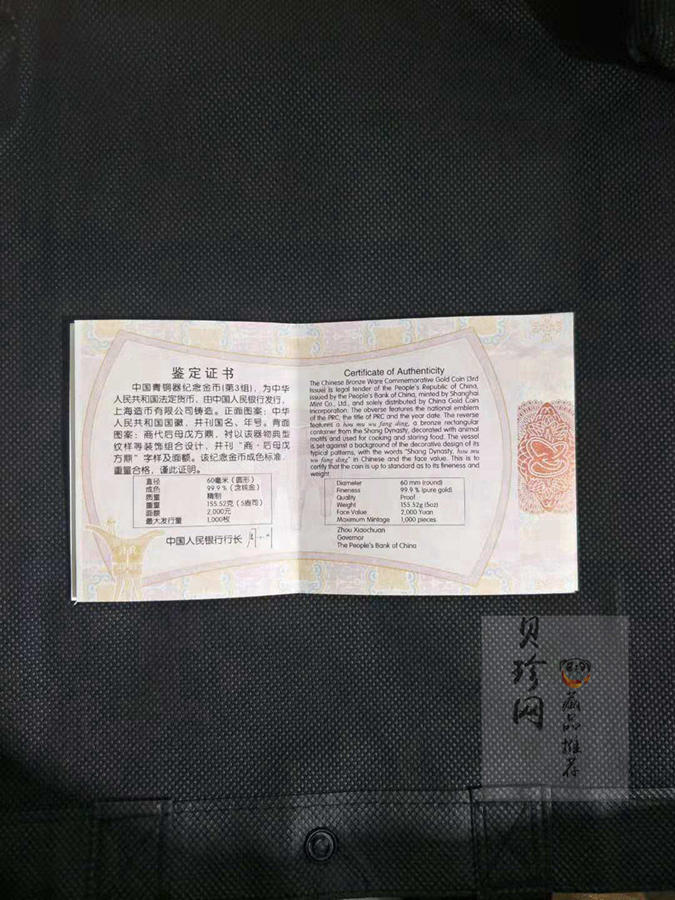 鉴定证书
中国青铜器纪念金币(第3组)，为中华
人民共和国法定货币，由中国人民银行发行，
上海造币有限公司铸造。正面图案：中华
人民共和国国徽，并刊国名、年号。背面
图案：商代后母戊方鼎，衬以该器物典型
纹样等装饰组合设计，并刊“商·后母戊
方鼎”字样及面额。该纪念金币成色标准，
重量合格，谨此证明。
直径 60毫米（圆形）
成色 99.9％（含纯金）
质量 精制
重量 155.52克（5盎司）
面额 2,000元
最大发行量 1,000枚
中国人民银行行长
Certificate of Authenticity
The Chinese Bronze Ware Commemorative Gold Coin (3rd
Issue) is legal tender of the People's Republic of China,
issued by the People's Bank of China, minted by Shanghai
Mint Co., Ltd., and solely distributed by China Gold Coin
Incorporation. The obverse features the national emblem
of the PRC, the title of PRC and the year date. The reverse
features a hou mu wu fang ding, a bronze rectangular
container from the Shang Dynasty, decorated with animal
motifs and used for cooking and storing food. The vessel
is set against a background of the decorative design of its
typical patterns, with the words "Shang Dynasty, hou mu
wu fang ding" in Chinese and the face value. This is to
certify that the coin is up to standard as to its fineness and
weight.
Diameter 60 mm (round)
Fineness 99.9 % (pure gold)
Quality Proof
Weight 155.52g (5oz)
Face Value 2,000 Yuan
Maximum Mintage 1,000 pieces
Zhou Xiaochuan
Governor
The People's Bank of China
贝珍网
藏品推荐